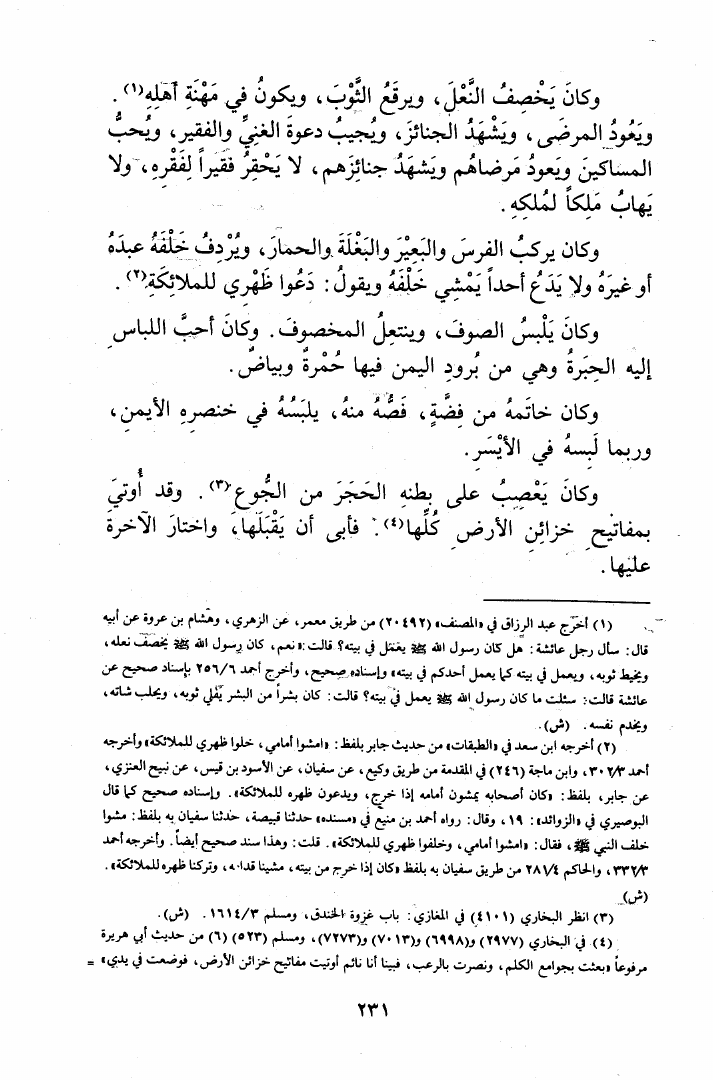 وكانَ يَخْصِفُ النَّعْلَ، ويرقَعُ الثَّوْبَ، ويكونُ في مَهْنَةِ أهلِهِ(١).
ويَعُودُ المرضَى، ويَشْهَدُ الجنائزَ، ويُجيبُ دعوةَ الغنيِّ والفقير، ويُحبُّ
المساكينَ ويَعودُ مَرضاهُم ويَشهَدُ جنائزَهم، لا يَحْقِرُ فَقيراً لِفَقْرِه، ولا
يَهابُ مَلِكاً لمُلكِهِ.
وكان يركبُ الفرسَ والبَعِيْرَ والبَغْلَةَ والحمارَ، ويُرْدِفُ خَلْفَهُ عبدَهُ
أو غيرَهُ ولا يَدَعُ أحداً يَمْشِي خَلْفَهُ ويقولُ: دَعُوا ظَهْري للملائِكَةِ(٢).
وكانَ يَلْبسُ الصوفَ، وينتعِلُ المخصوفَ. وكانَ أحبَّ اللباسِ
إليه الحِبَرةُ وهي من بُرودِ اليمن فيها حُمْرةٌ وبياضٌ.
وكان خاتَمهُ من فِضَّةٍ، فَصُّهُ منهُ، يلبَسُهُ في خنصرِهِ الأيمنِ،
وربما لَبِسهُ في الأيْسَرِ.
وكانَ يَعْصِبُ على بطنهِ الحَجَرَ من الجُوعِ(٣). وقد أُوتيَ
بمفاتيحِ خزائنِ الأرضِ كُلِّها(٤). فأبى أن يَقْبَلَها، واختارَ الآخرةَ
عليها.
(١) أخرج عبد الرزاق في «المصنف» (٢٠٤٩٢) من طريق معمر، عن الزهري، وهشام بن عروة عن أبيه
قال: سأل رجل عائشة: هل كان رسول الله ﷺ يعمل في بيته؟ قالت: «نعم، كان رسول الله ﷺ يخصف نعله،
ويخيط ثوبه، ويعمل في بيته كما يعمل أحدكم في بيته» وإسناده صحيح، وأخرج أحمد ٢٥٦/٦ بإسناد صحيح عن
عائشة قالت: سئلت ما كان رسول الله ﷺ يعمل في بيته؟ قالت: كان بشراً من البشر يَفْلي ثوبه، ويحلب شاته،
ويخدم نفسه. (ش).
(٢) أخرجه ابن سعد في «الطبقات» من حديث جابر بلفظ: «امشوا أمامي، خلوا ظهري للملائكة» وأخرجه
أحمد ٣٠٢/٣، وابن ماجة (٢٤٦) في المقدمة من طريق وكيع، عن سفيان، عن الأسود بن قيس، عن نبيح العنزي،
عن جابر، بلفظ: «كان أصحابه يمشون أمامه إذا خرج، ويدعون ظهره للملائكة». وإسناده صحيح كما قال
البوصيري في «الزوائد»: ١٩، وقال: رواه أحمد بن منيع في «مسنده» حدثنا قبيصة، حدثنا سفيان به بلفظ: مشوا
خلف النبي ﷺ، فقال: «امشوا أمامي، وخلفوا ظهري للملائكة». قلت: وهذا سند صحيح أيضاً. وأخرجه أحمد
٣٣٢/٣، والحاكم ٢٨١/٤ من طريق سفيان به بلفظ «كان إذا خرج من بيته، مشينا قدامه، وتركنا ظهره للملائكة».
(ش).
(٣) انظر البخاري (٤١٠١) في المغازي: باب غزوة الخندق، ومسلم ١٦١٤/٣. (ش).
(٤) في البخاري (٢٩٧٧) و(٦٩٩٨) و(٧٠١٣) و(٧٢٧٣)، ومسلم (٥٢٣) (٦) من حديث أبي هريرة
مرفوعاً «بعثت بجوامع الكلم، ونصرت بالرعب، فبينا أنا نائم أوتيت مفاتيح خزائن الأرض، فوضعت في يدي» =
٢٣١